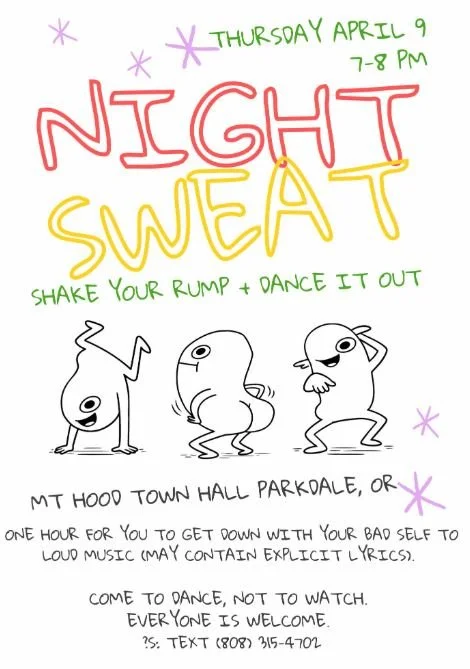 THURSDAY APRIL 9
7-8 PM
NIGHT
SWEAT
SHAKE YOUR RUMP + DANCE IT OUT
MT HOOD TOWN HALL PARKDALE, OR
ONE HOUR FOR YOU TO GET DOWN WITH YOUR BAD SELF TO
LOUD MUSIC (MAY CONTAIN EXPLICIT LYRICS).
COME TO DANCE, NOT TO WATCH.
EVERYONE IS WELCOME.
?S: TEXT (808) 315-4702